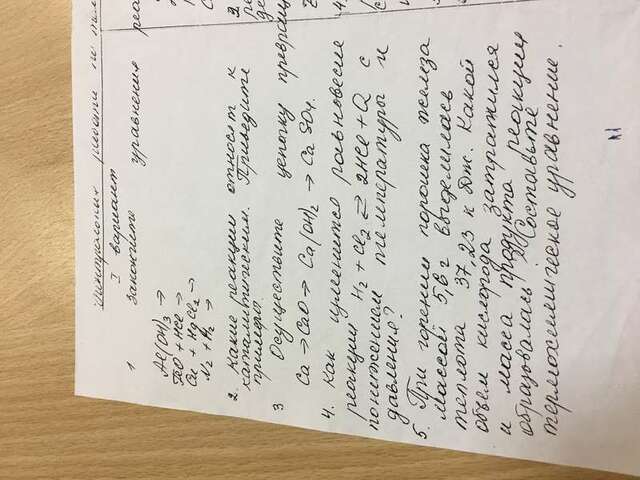 Контрольная работа по
I вариант
1 закончите уравнения реа
Al(OH)3 →
FeO + HCl →
Cu + HgCl2 →
N2 + H2 →
2. Какие реакции относят к
каталитическим. Приведите
примеры.
3 Осуществите цепочку превращ
Ca → CaO → Ca(OH)2 → CaSO4
4. Как изменится равновесие
реакции H2 + Cl2 ⇄ 2HCl + Q с
понижением температуры и
давления?
5. При горении порошка железа
массой 5,6 г выделилась
теплота 37.23 кДж. Какой
объем кислорода затратился
и масса продукта реакции
образовалась? Составьте
термохимическое уравнение.